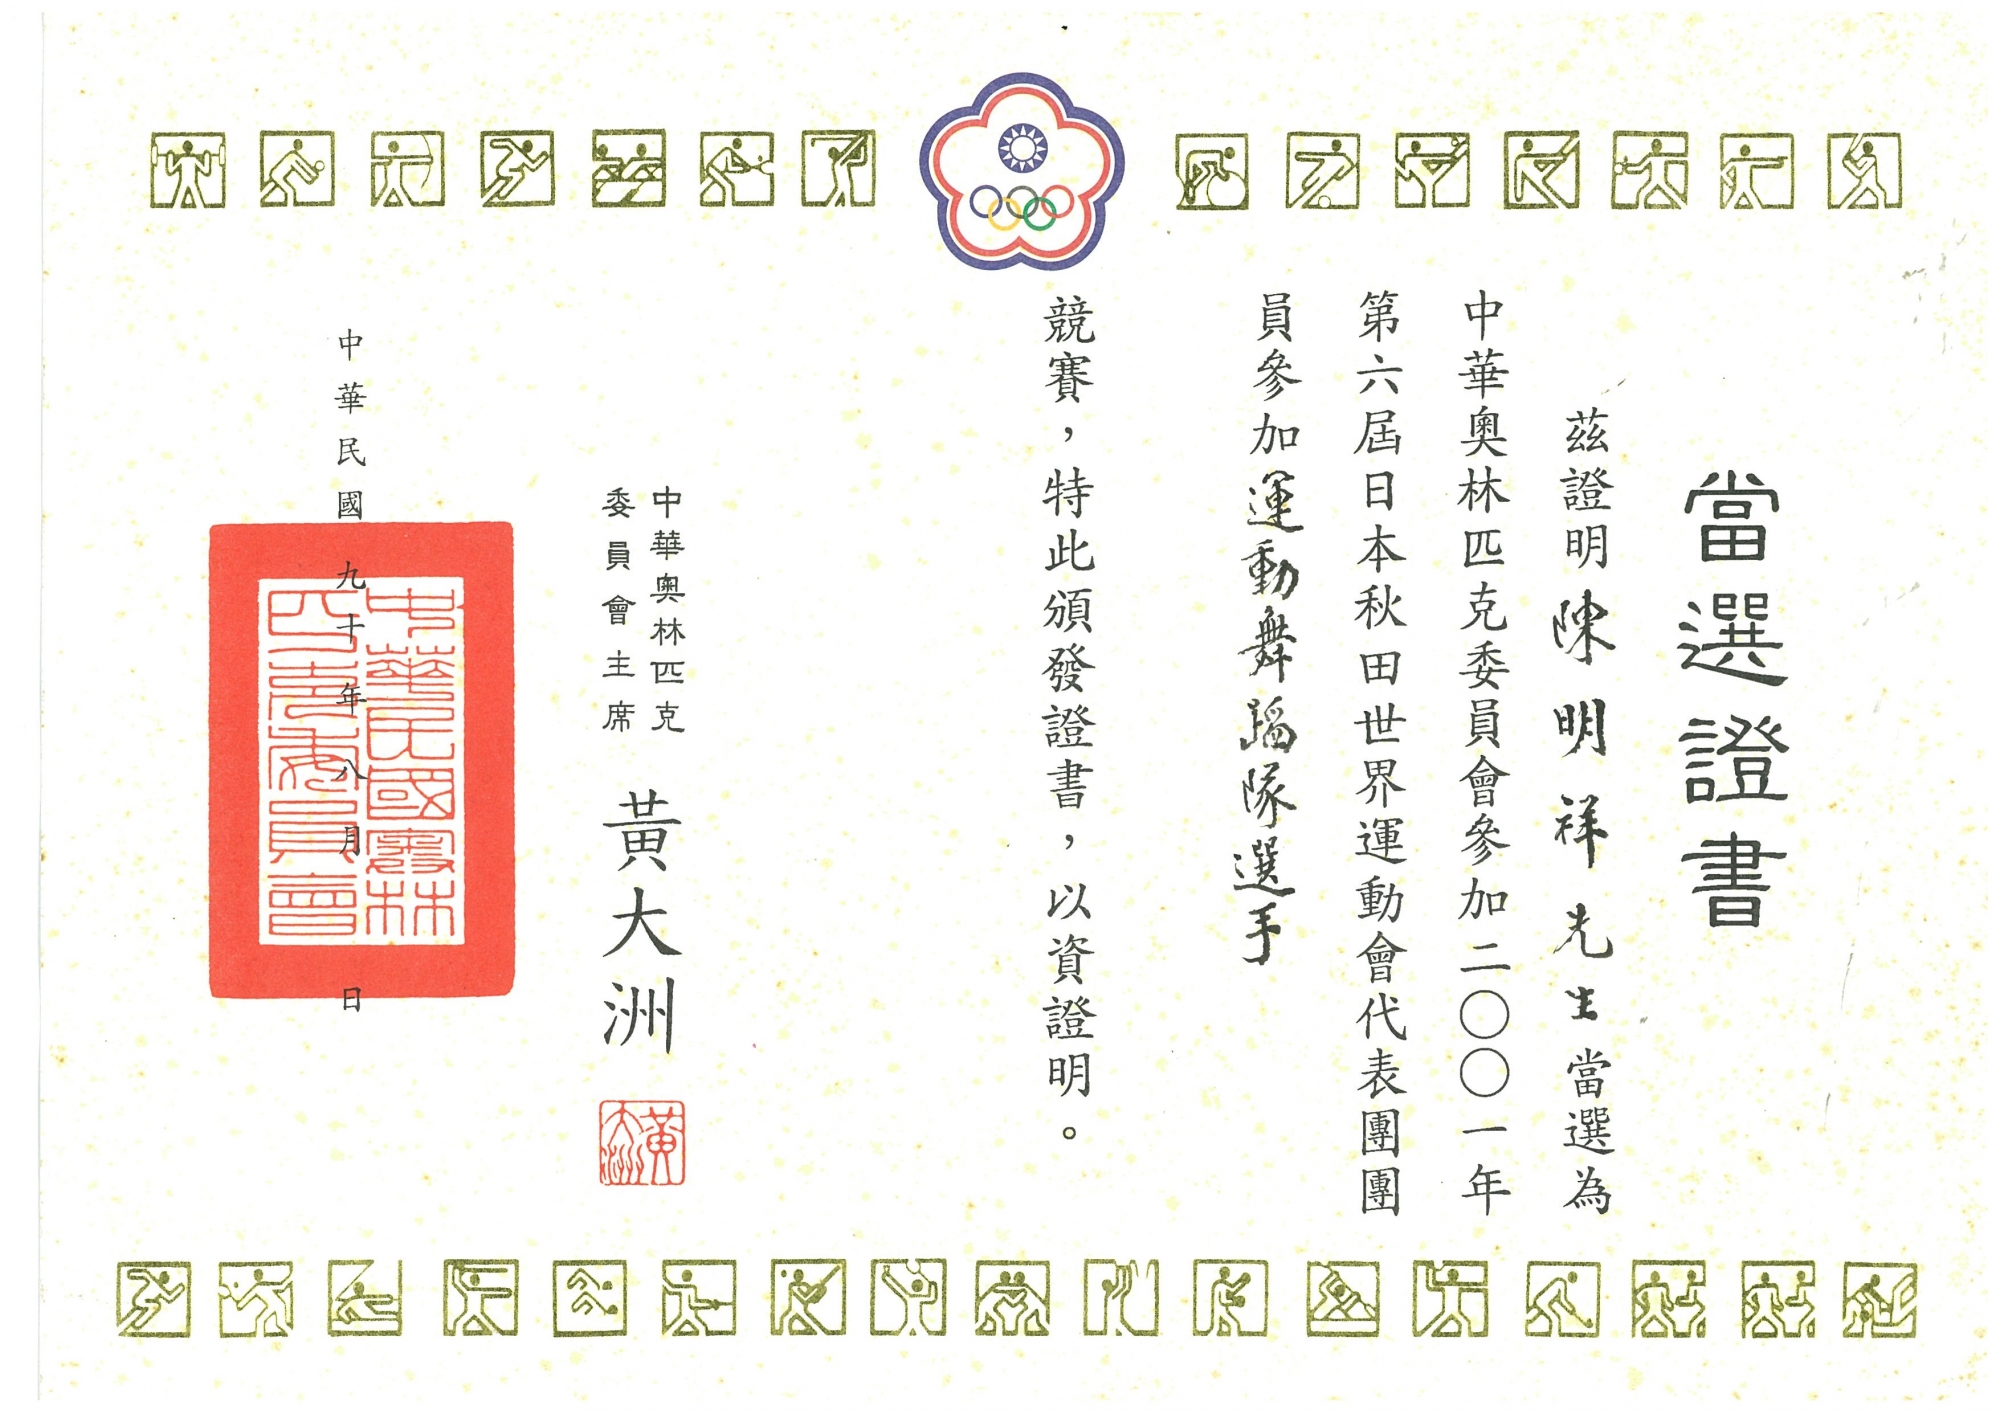 當選證書
茲證明陳明祥先生當選為
中華奧林匹克委員會參加二〇〇一年
第六屆日本秋田世界運動會代表團團
員參加運動舞蹈隊選手
競賽，特此頒發證書，以資證明。
中華奧林匹克
委員會主席
黃大洲
黃大洲
中華民國九十年八月日
中華民國奧林
匹克委員會